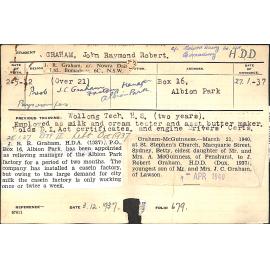 STUDENT GRAHAM, John Raymond Robert, H.D.D
J. R. Graham, c/- Nowra Dairy
Ltd. Bomaderry 6C, NSW.
(Over 21) Box 16, 27.1.37
Albion Park
J.C. Graham
Albion Park
PREVIOUS TRAINING. Wollong Tech. H.S. (two years).
Employed as milk and cream tester and asst. butter maker.
Holds D.I. Act certificates, and engine drivers' Certs.
left Dec 1937
J. R. R. Graham, H.D.A. (1937), P.O.
Box 16, Albion Park, has been appointed
as relieving manager of the Albion Park
factory for a period of two months. The
company has installed a casein factory,
but owing to the large demand for city
milk the casein factory is only working
once or twice a week.
Graham-McGuinness.—March 21, 1940,
at St. Stephen's Church, Macquarie Street,
Sydney, Betty, eldest daughter of Mr. and
Mrs. A. McGuinness, of Penshurst, to J.
Robert Graham, H.D.D. (Dux, 1937),
youngest son of Mr. and Mrs. J. C. Graham,
of Lawson.
APR 1940
DATE 3.12.1937. FOLIO 679.